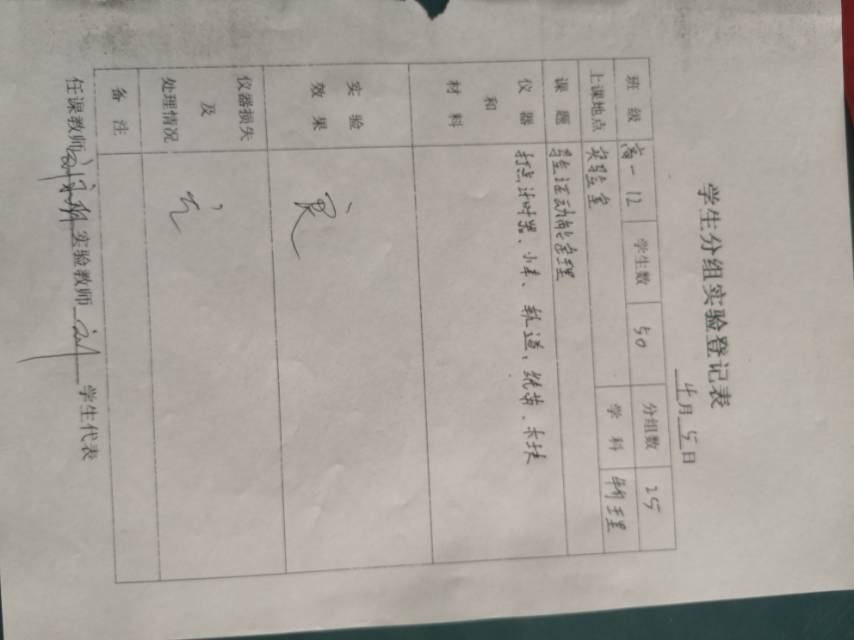 学生分组实验登记表
4月5日
班级 高一12 学生数 50 分组数 25
上课地点 实验室 学科 物理
课题 验证动能定理
仪器和材料 打点计时器、小车、轨道、纸带、木块
实验效果 良
仪器损失及处理情况 无
备注
任课教师 实验教师 学生代表